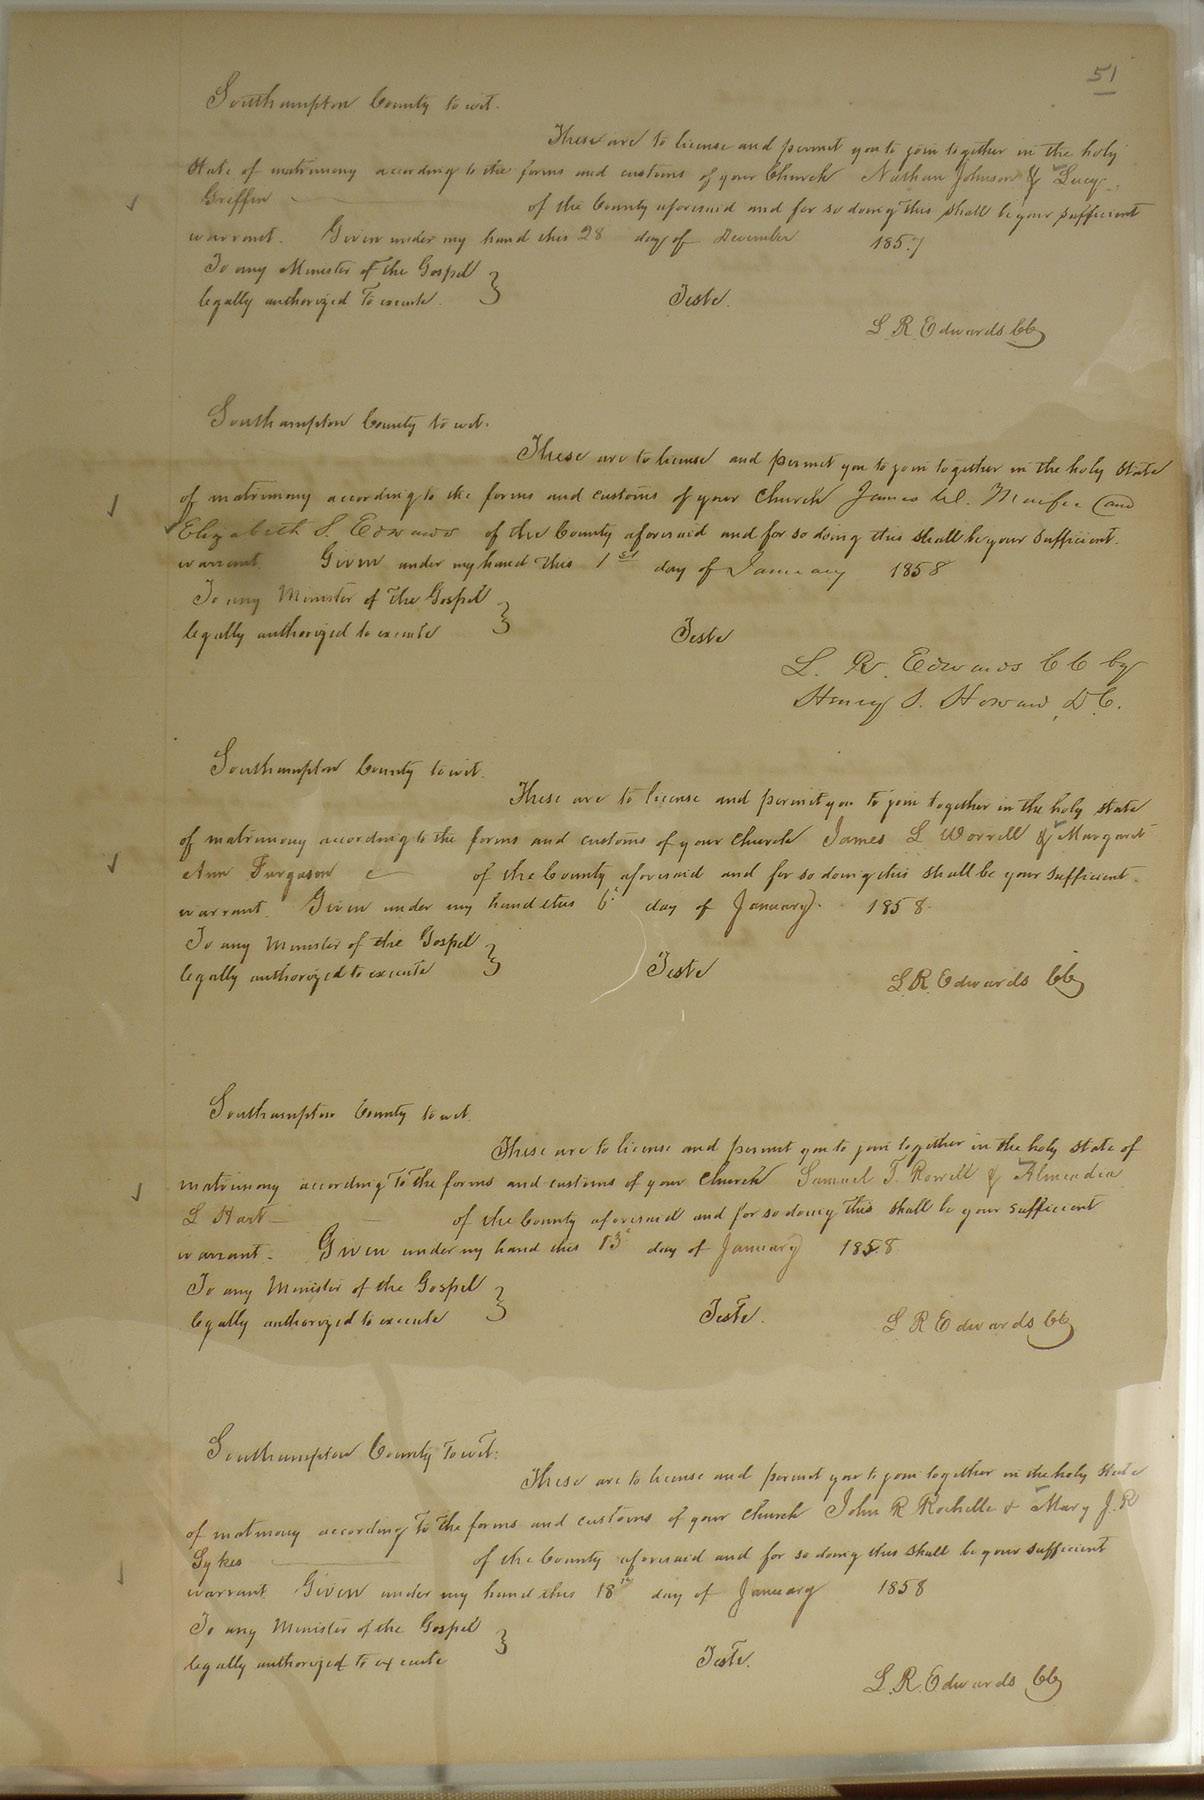 51
Southampton County to wit.
These are to license and permit you to join together in the holy
State of matrimony according to the forms and customs of your Church Nathan Johnson & Lucy
Griffin of the County aforesaid and for so doing this shall be your sufficient
warrant. Given under my hand this 28 day of December 1857
To any Minister of the Gospel
legally authorized to execute. Teste.
L. R. Edwards CC
Southampton County to wit.
These are to license and permit you to join together in the holy State
of matrimony according to the forms and customs of your Church James (and
Elizabeth S. Edwards of the County aforesaid and for so doing this shall be your sufficient.
warrant Given under my hand this 1st day of January 1858
To any Minister of the Gospel
legally authorized to execute Teste
L. R. Edwards CC by
Henry S. Howard, D.C.
Southampton County to wit.
These are to license and permit you to join together in the holy state
of matrimony according to the forms and customs of your Church James L Worrell & Margaret
Ann Furgason of the County aforesaid and for so doing this shall be your sufficient.
warrant. Given under my hand this 6 day of January. 1858.
To any Minister of the Gospel
legally authorized to execute Teste
L. R. Edwards CC
Southampton County to wit.
These are to license and permit you to join together in the holy state of
matrimony according to the forms and customs of your Church Samuel T. Rowell & Almeadia
L Hart of the County aforesaid and for so doing this shall be your sufficient
warrant. Given under my hand this 13 day of January 1858
To any Minister of the Gospel
legally authorized to execute Teste.
L R Edwards CC
Southampton County to wit:
These are to license and permit you to join together in the holy state
of matimony according to the forms and customs of your Church John R Rochelle & Mary J. R
Sykes of the County aforesaid and for so doing this shall be your sufficient
warrant. Given under my hand this 18th day of January 1858
To any Minister of the Gospel
legally authorized to execute Teste.
L. R. Edwards CC